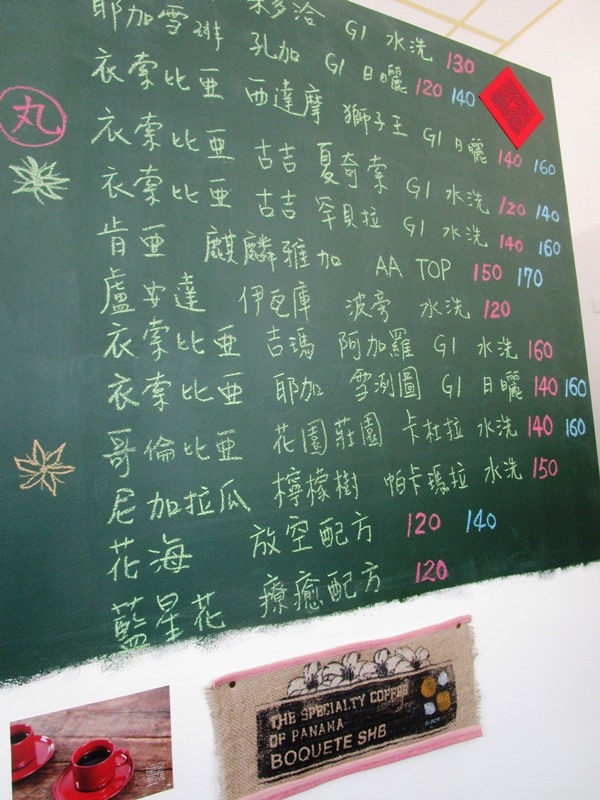 G1 水洗 130
耶加雪啡 孔加 G1 日曬 120 140
衣索比亞 西達摩 獅子王 G1 日曬 140 160
丸
衣索比亞 古吉 夏奇索 G1 水洗 120 140
衣索比亞 古吉 罕貝拉 G1 水洗 140 160
肯亞 麒麟雅加 AA TOP 150 170
盧安達 伊瓦庫 波旁 水洗 120
衣索比亞 吉瑪 阿加羅 G1 水洗 160
衣索比亞 耶加 雪洌圖 G1 日曬 140 160
哥倫比亞 花園莊園 卡杜拉 水洗 140 160
尼加拉瓜 檸檬樹 帕卡瑪拉 水洗 150
花海 放空配方 120 140
藍星花 療癒配方 120
THE SPECIALTY COFFEE
OF PANAMA
BOQUETE SHB